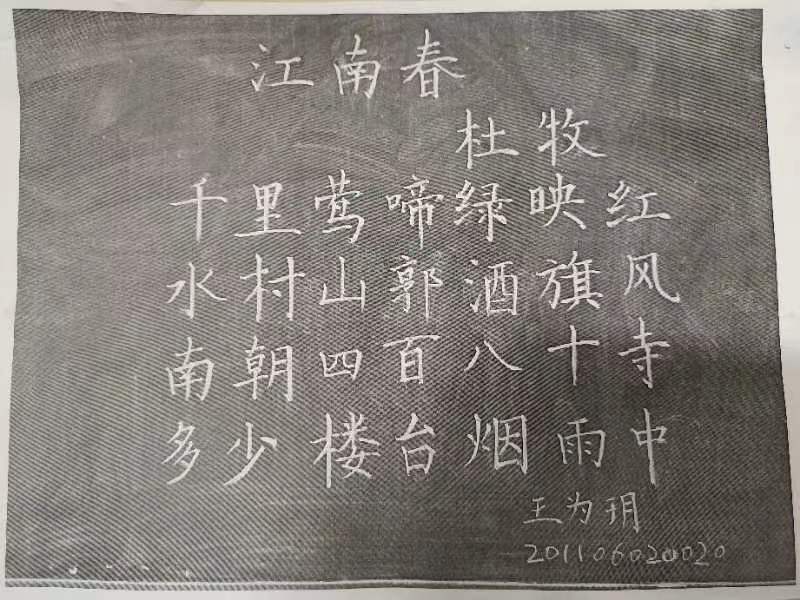 江南春
杜牧
千里莺啼绿映红
水村山郭酒旗风
南朝四百八十寺
多少楼台烟雨中
王为玥
201106020020